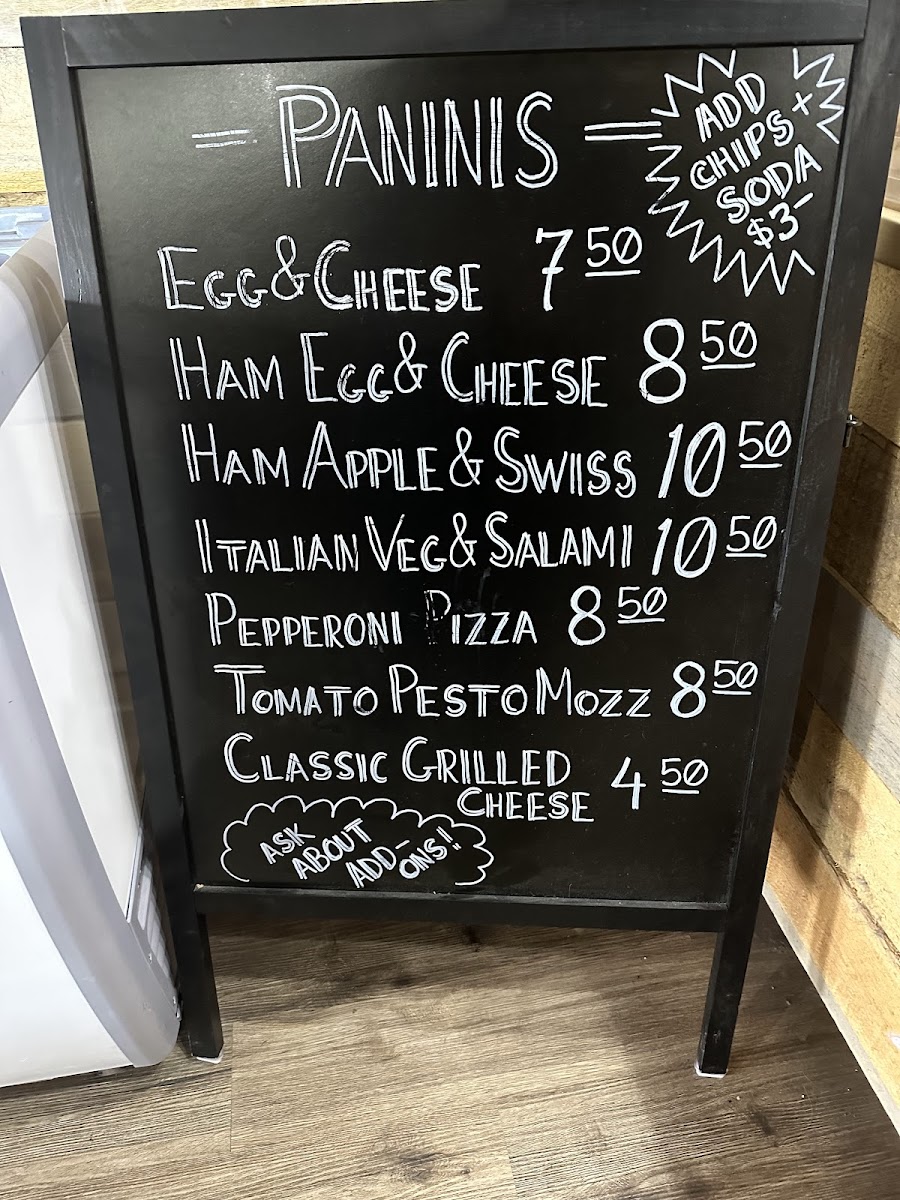 = PANINIS =
ADD
CHIPS +
SODA
$3-
EGG & CHEESE 7 50
HAM EGG & CHEESE 8 50
HAM APPLE & SWISS 10 50
ITALIAN VEG & SALAMI 10 50
PEPPERONI PIZZA 8 50
TOMATO PESTO MOZZ 8 50
CLASSIC GRILLED
CHEESE 4 50
ASK
ABOUT
ADD-
ONS!!